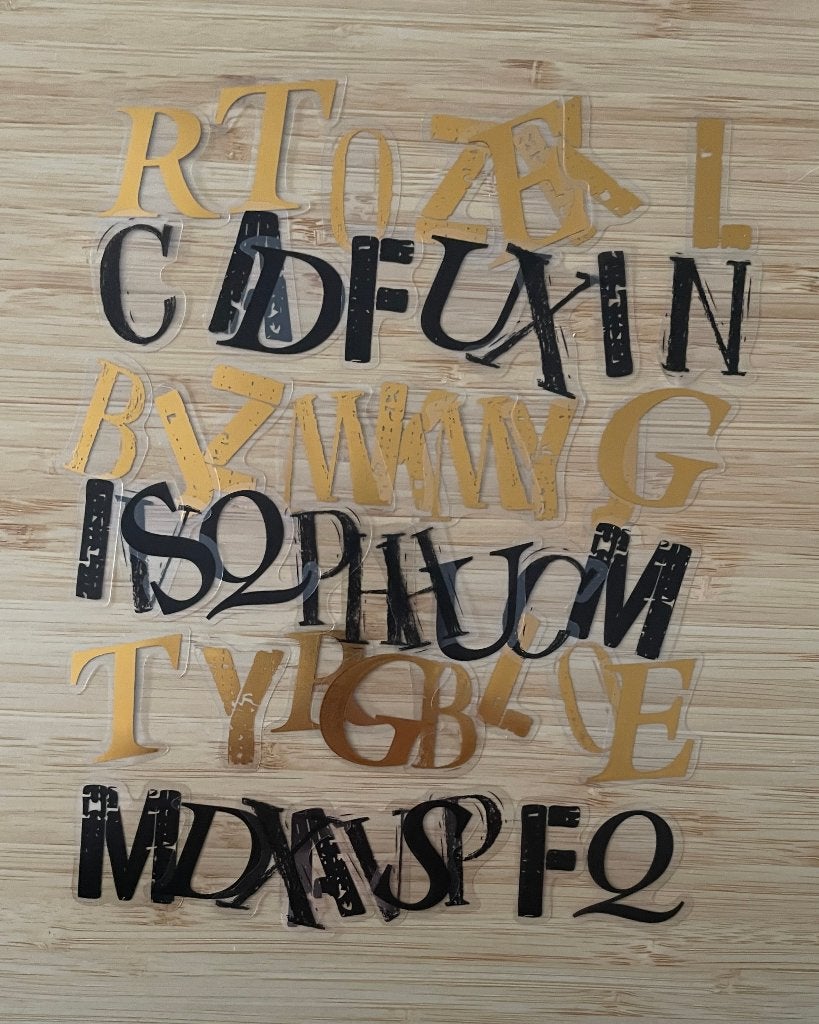 RTOZEKL
CADFUXIN
BYZWKWYG
IVSQPHHUCM
TYRGBLOE
MDXAVSPFQ